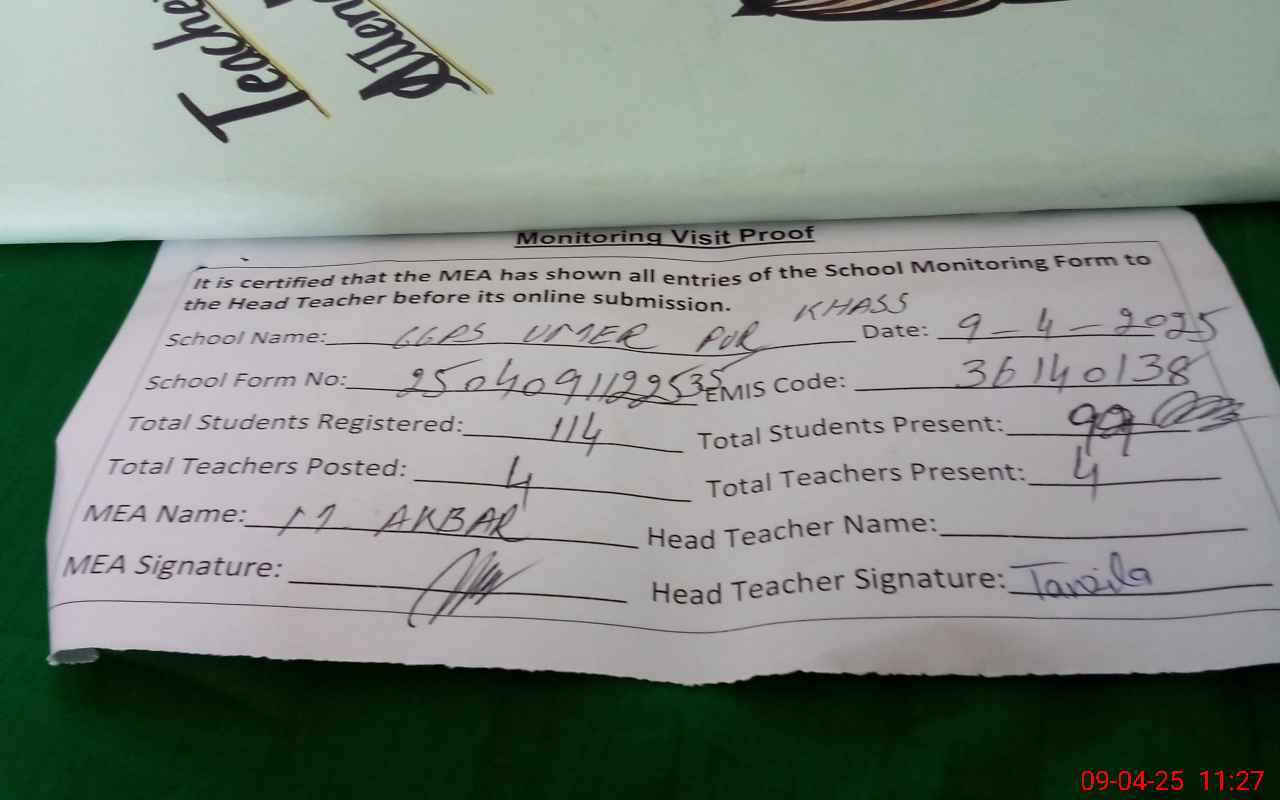 Teache
Atten
Monitoring Visit Proof
It is certified that the MEA has shown all entries of the School Monitoring Form to
the Head Teacher before its online submission.
School Name: GGPS UMER PUR KHASS Date: 9-4-2025
School Form No: 250409112253 EMIS Code: 36140138
Total Students Registered: 114 Total Students Present: 99
Total Teachers Posted: 4 Total Teachers Present: 4
MEA Name: M AKBAR Head Teacher Name:
MEA Signature: Head Teacher Signature: Tanzila
09-04-25 11:27